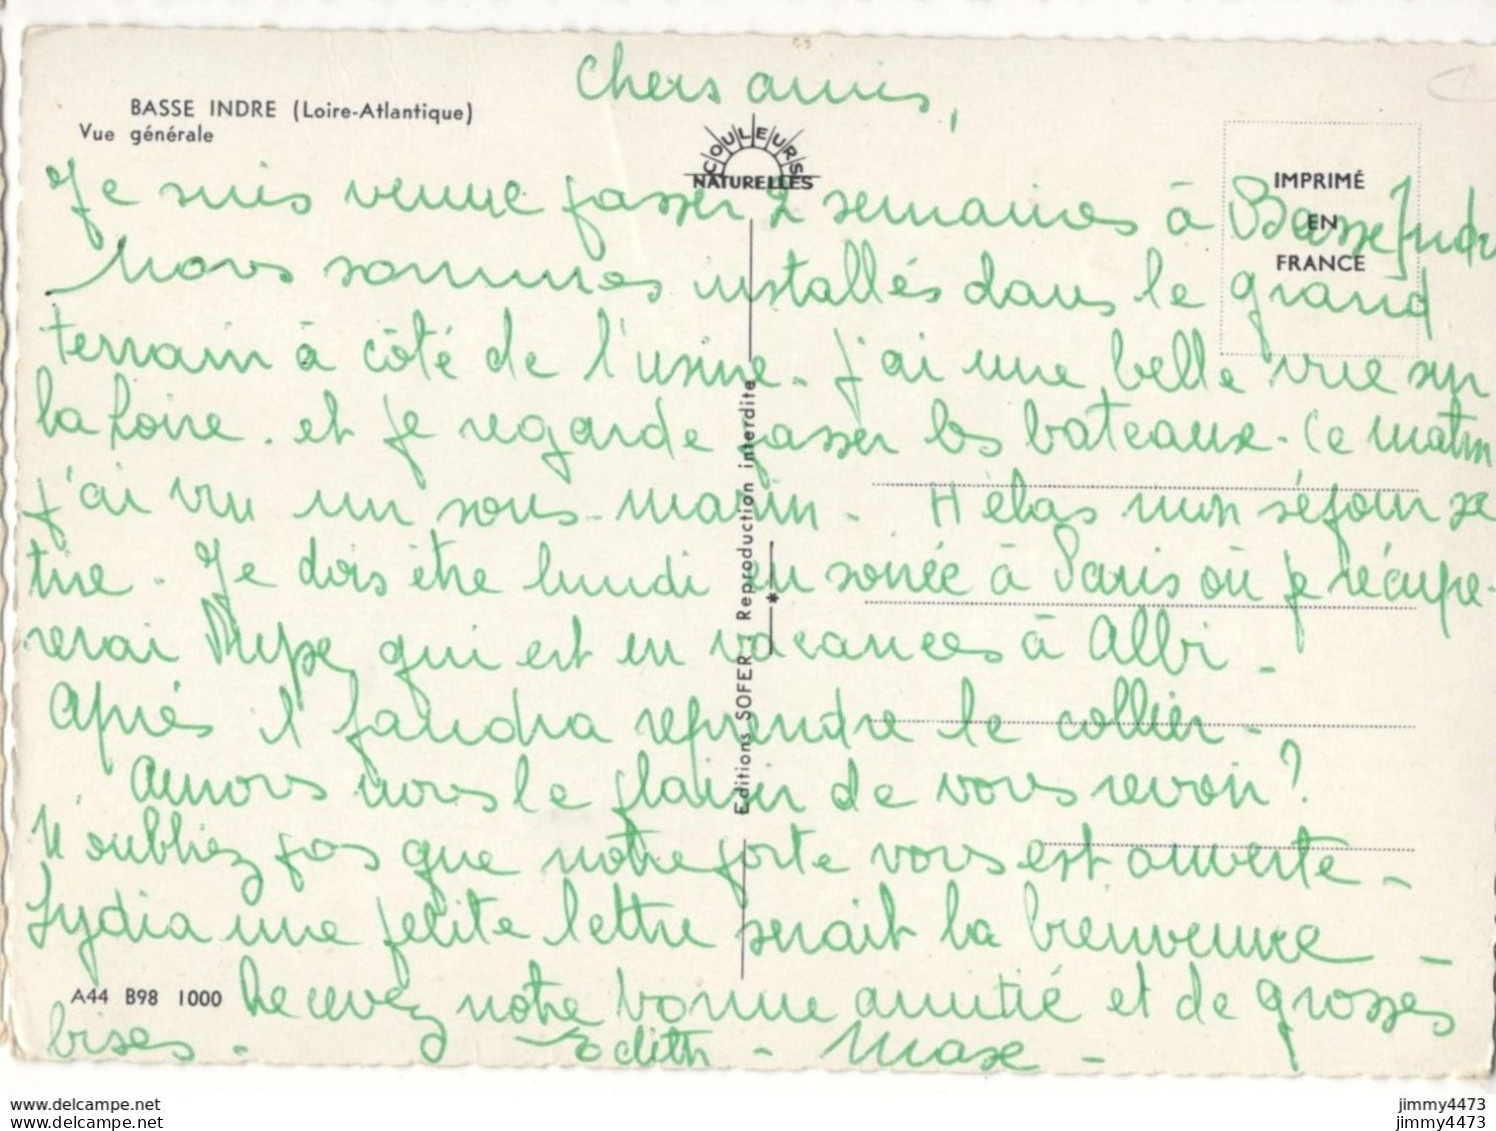 Chers amis,
BASSE INDRE (Loire-Atlantique)
Vue générale
COULEURS
NATURELLES
IMPRIMÉ
EN
FRANCE
Je suis venue passer 2 semaines à Basse Indre
Nous sommes installés dans le grand
terrain à côté de l'usine. J'ai une belle vue sur
la Loire. et je regarde passer les bateaux. Ce matin
j'ai vu un sous-marin. Hélas mon séjour se
tire. Je dois être lundi en soirée à Paris où je récupé-
rerai qui est en vacances à Albi.
Après il faudra reprendre le collier.
Aurons nous le plaisir de vous revoir?
N'oubliez pas que notre porte vous est ouverte.
Lydia une petite lettre serait la bienvenue -
Recevez notre bonne amitié et de grosses
bises. Edith - Maxe -
Editions SOFER - Reproduction interdite
*
A44 B98 1000
www.delcampe.net
www.delcampe.net
jimmy4473
jimmy4473